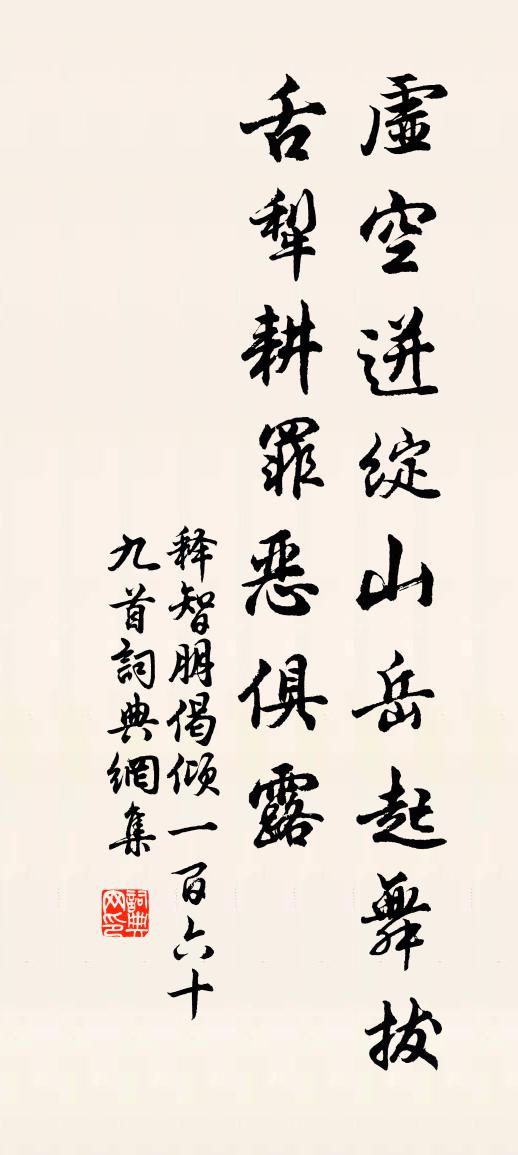 虛空迸綻山岳起舞拔
舌犁耕罪惡俱露
释智朋偈倾一百六十
九首詞典網集
詞典
网印